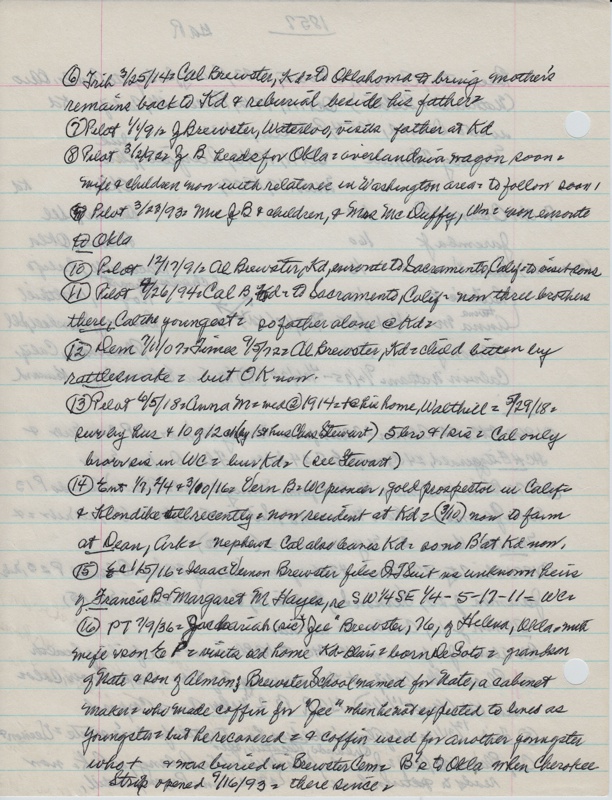 ⑥ Trib 3/25/14 = Cal Brewster, Kd = to Oklahoma to bring mother's
remains back to Kd & reburial beside his father =
⑦ Pilot 1/4/91 = J Brewster, Waterloo, visits father at Kd
⑧ Pilot 3/2/92 = J B heads for Okla = overland via wagon soon =
wife & children now with relatives in Washington area = to follow soon,
Pilot 3/23/93 = Mrs J B & children, & Mrs McDuffy, Wn = son enroute
to Okla
⑩ Pilot 12/17/91 = Al Brewster, Kd, enroute to Sacramento, Calif = to visit sons
⑪ Pilot 4/26/94 = Cal B, Kd = to Sacramento, Calif = now three brothers
there, Cal the youngest = so father alone @ Kd =
⑫ Dem 7/11/07 = Times 9/5/22 = Al Brewster, Kd = child bitten by
rattlesnake = but OK now.
⑬ Pilot 6/5/18 = Anna M = wed @ 1914 = his home, Walthill = 5/29/18 =
surv by hus & 10 of 12 ch (by 1st hus Chas Stewart) 5 bro & 1 sis = Cal only
bro or sis in WC = bur Kd = (see Stewart)
⑭ Ent 1/7, 2/4 & 3/10/16 = Vern B = WC pioneer, gold prospector in Calif =
& Klondike till recently = now resident at Kd = (3/10) now to farm
at Dean, Ark = nephew Cal also leaves Kd = so no B' at Kd now.
⑮ 1/5/16 = Isaac Vernon Brewster files QT Suit vs unknown heirs
of Francis B & Margaret M Hayes, re SW 1/4 SE 1/4 - 5-17-11 = WC =
⑯ PT 7/9/36 = Zachariah (sic) "Jee" Brewster, 76, of Helena, Okla = with
wife & son E P = visits old home Kd-Blair = born De Soto = grandson
of Nate & son of Almon = Brewster School named for Nate, a cabinet
maker = who made coffin for "Jee" when he not expected to live as
youngster = but he recovered = & coffin used for another youngster
who + & was buried in Brewster Cem = B's to Okla when Cherokee
Strip opened 9/16/93 = there since =